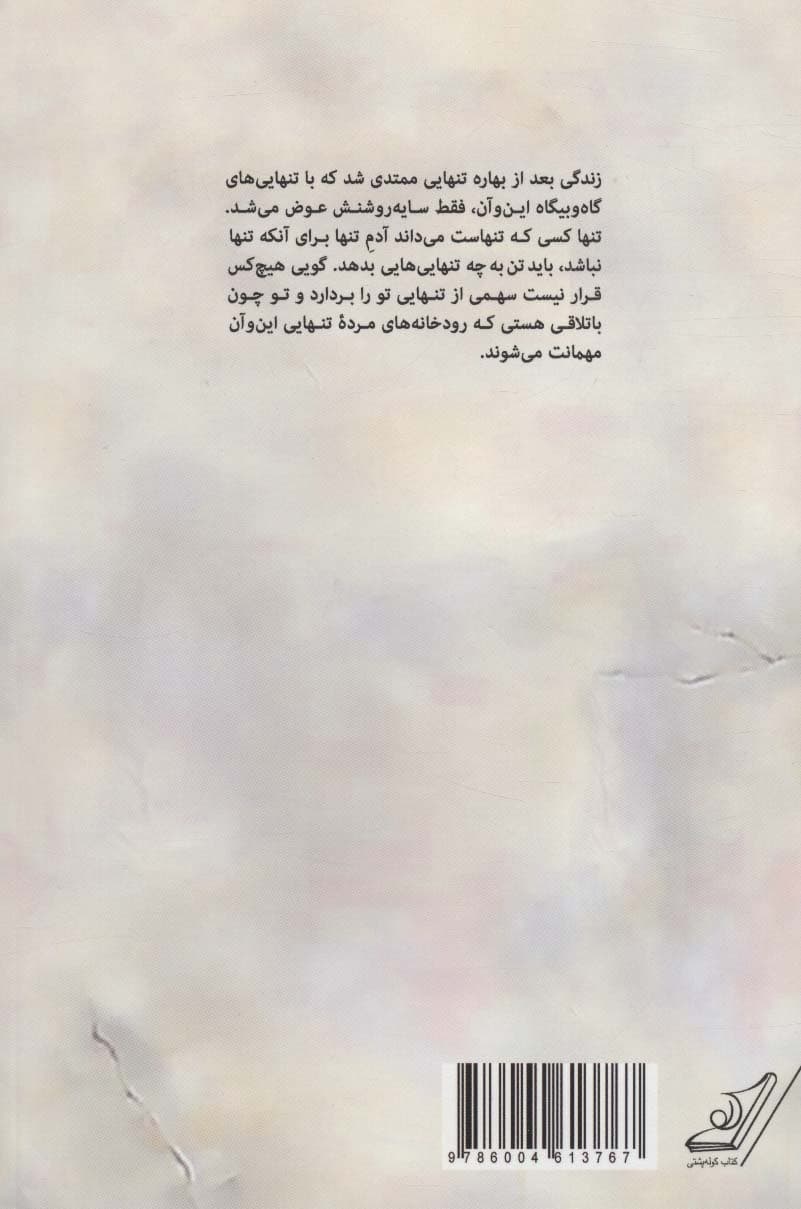 زندگی بعد از بهاره تنهایی ممتدی شد که با تنهایی‌های
گاه‌وبیگاه این‌وآن، فقط سایه‌روشنش عوض می‌شد.
تنها کسی که تنهاست می‌داند آدمِ تنها برای آنکه تنها
نباشد، باید تن به چه تنهایی‌هایی بدهد. گویی هیچ‌کس
قرار نیست سهمی از تنهایی تو را بردارد و تو چون
باتلاقی هستی که رودخانه‌های مردهٔ تنهایی این‌وآن
مهمانت می‌شوند.
9 786004 613767
کتاب کوله‌پشتی